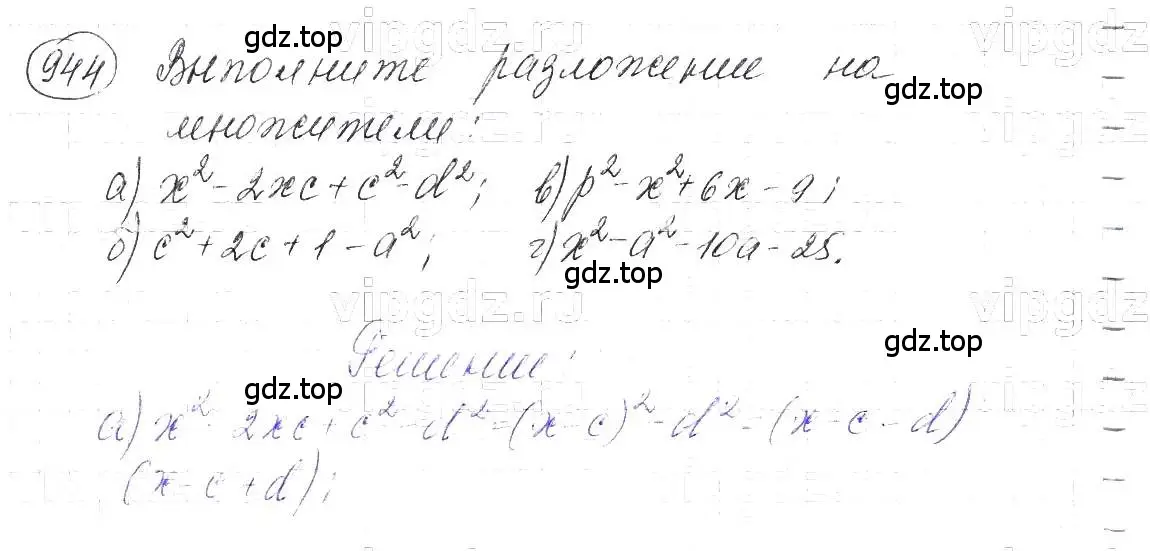 gdz.top
vipgdz.ru
vipgdz.ru
944 Выполните разложение на
gdz.top
множители:
а) x² - 2xc + c² - d²; в) p² - x² + 6x - 9;
б) c² + 2c + 1 - a²; г) x² - a² - 10a - 25.
gdz.top
vipgdz.ru
vipgdz.ru
Решение:
gdz.top
gdz.top
а) x² - 2xc + c² - d² = (x - c)² - d² = (x - c - d)
(x - c + d);